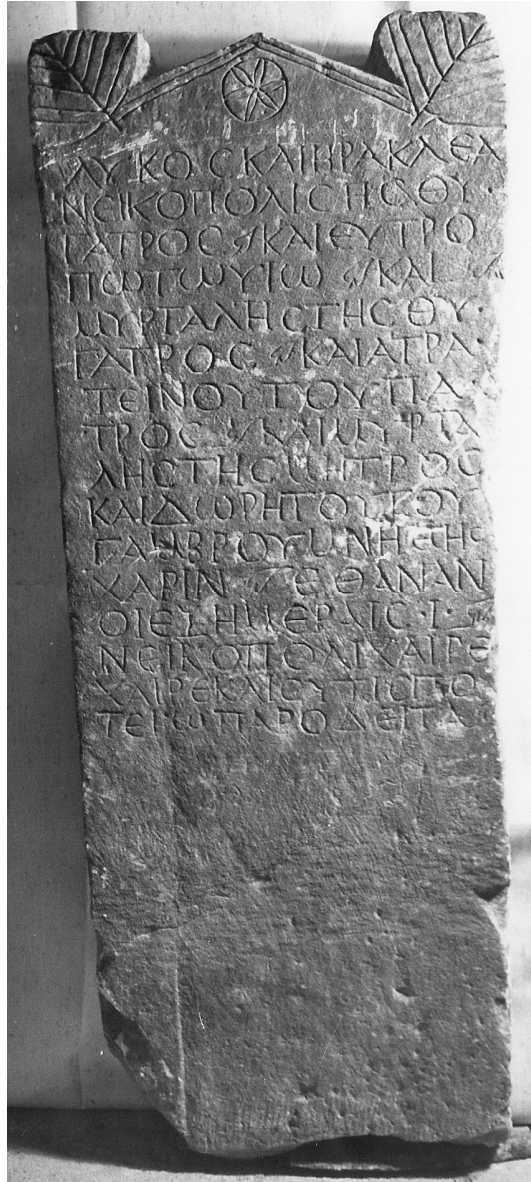 ΛΥΚΟΣ ΚΑΙ ΗΡΑΚΛΕΑ
ΝΕΙΚΟΠΟΛΙΣ ΤΗΣ ΘΥ
ΓΑΤΡΟΣ ΚΑΙ ΕΥΤΡΟ
ΠΩ ΤΩ ΥΙΩ ΚΑΙ
ΜΥΡΤΑΛΗΣ ΤΗΣ ΘΥ
ΓΑΤΡΟΣ ΚΑΙ ΑΤΡΑ
ΤΕΙΝΟΥ ΤΟΥ ΠΑ
ΤΡΟΣ ΚΑΙ ΜΥΡΤΑ
ΛΗΣ ΤΗΣ ΜΗΤΡΟΣ
ΚΑΙ ΔΩΡΗΤΟΥ ΚΟΥ
ΓΑΜΒΡΟΥ ΜΝΗΣΤΗΣ
ΧΑΡΙΝ ΕΘΑΝΑΝ
ΟΙ ΕΞ ΗΜΕΡΑΙΣ Ι
ΝΕΙΚΟΠΟΛΙ ΧΑΙΡΕ
ΧΑΙΡΕ ΚΑΙ ΣΥ ΤΙΣ ΠΟ
ΤΕ ΙΩ ΠΑΡΟΔΕΙΤΑ